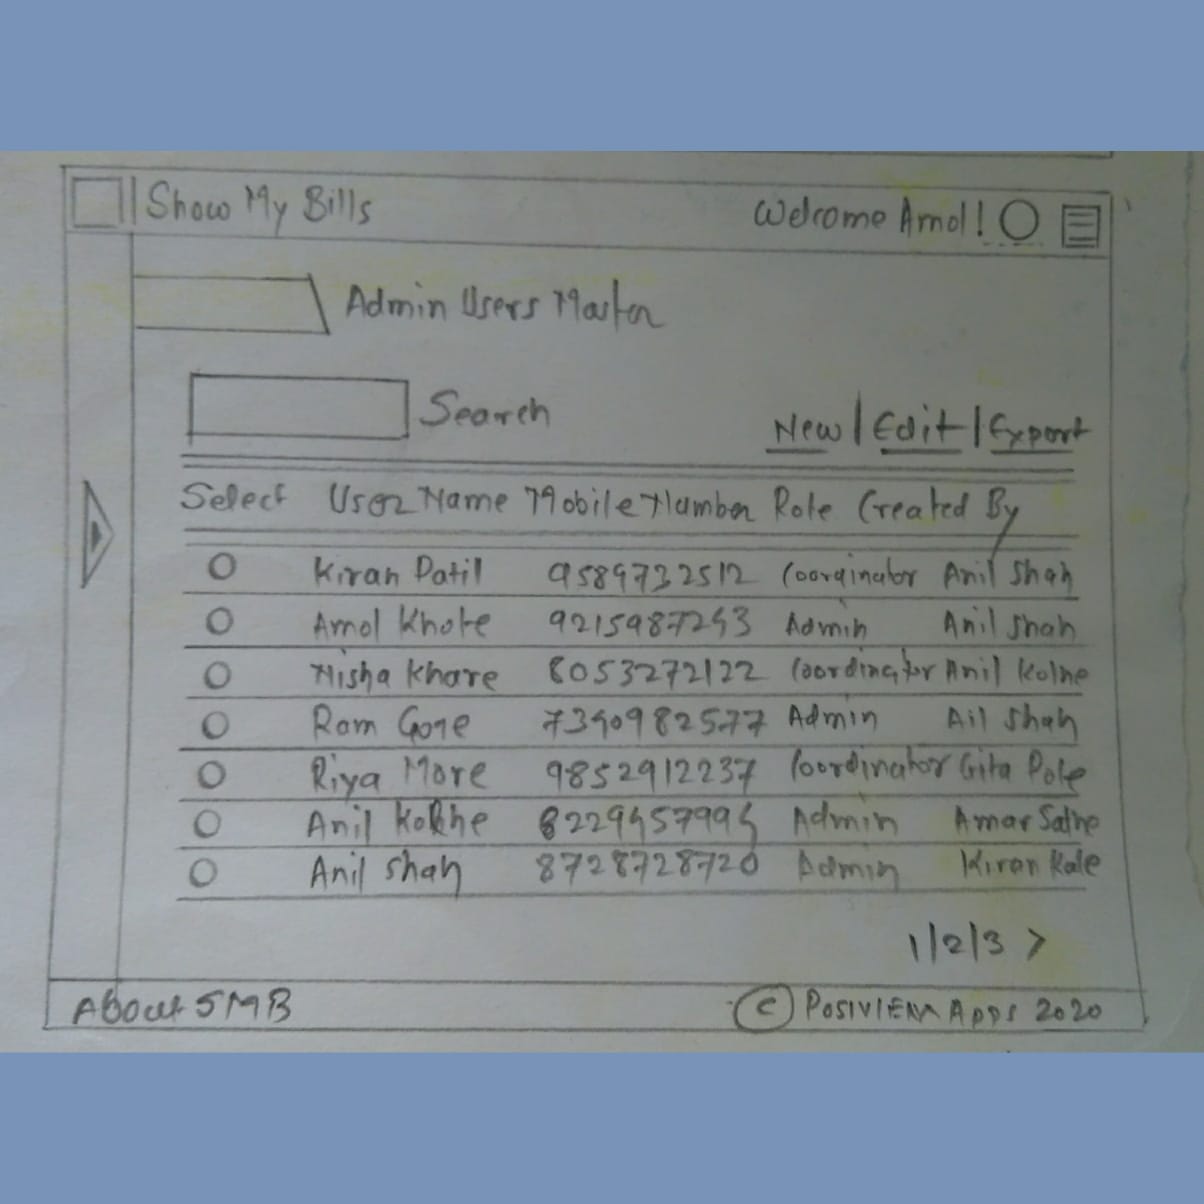 Show My Bills Welcome Amol!
Admin Users Master
Search
New | Edit | Export
Select User Name Mobile Number Role Created By
Kiran Patil 9589732512 Coordinator Anil Shah
Amol Khote 9215987243 Admin Anil Shah
Nisha Khare 8053272122 Coordinator Anil Kolhe
Ram Gore 7390982577 Admin Ail Shah
Riya More 9852912237 Coordinator Gita Pole
Anil Kolhe Admin Amar Sathe
Anil Shah 8728728720 Admin Kiran Kale
1/2/3 >
About SMB © Apps 2020